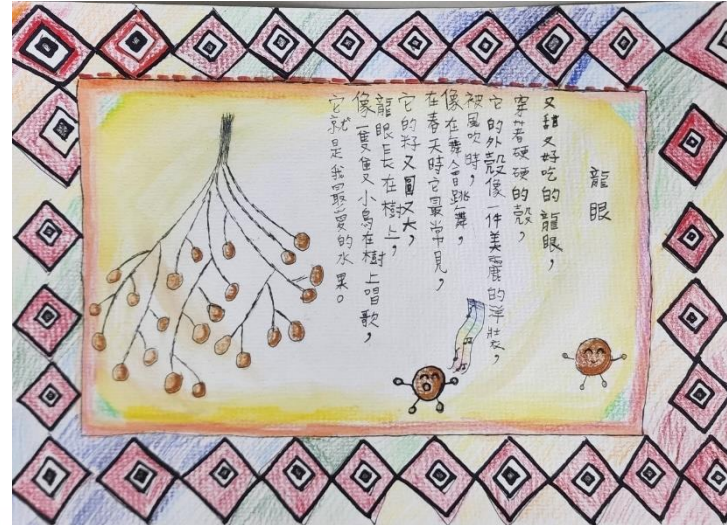 龍眼
又甜又好吃的龍眼，
穿著硬硬的殼，
它的外殼像一件美麗的洋裝，
被風吹時，
像在舞會跳舞，
在春天時它最常見，
它的籽又圓又大，
龍眼長在樹上，
像一隻隻又小鳥在樹上唱歌，
它就是我最愛的水果。